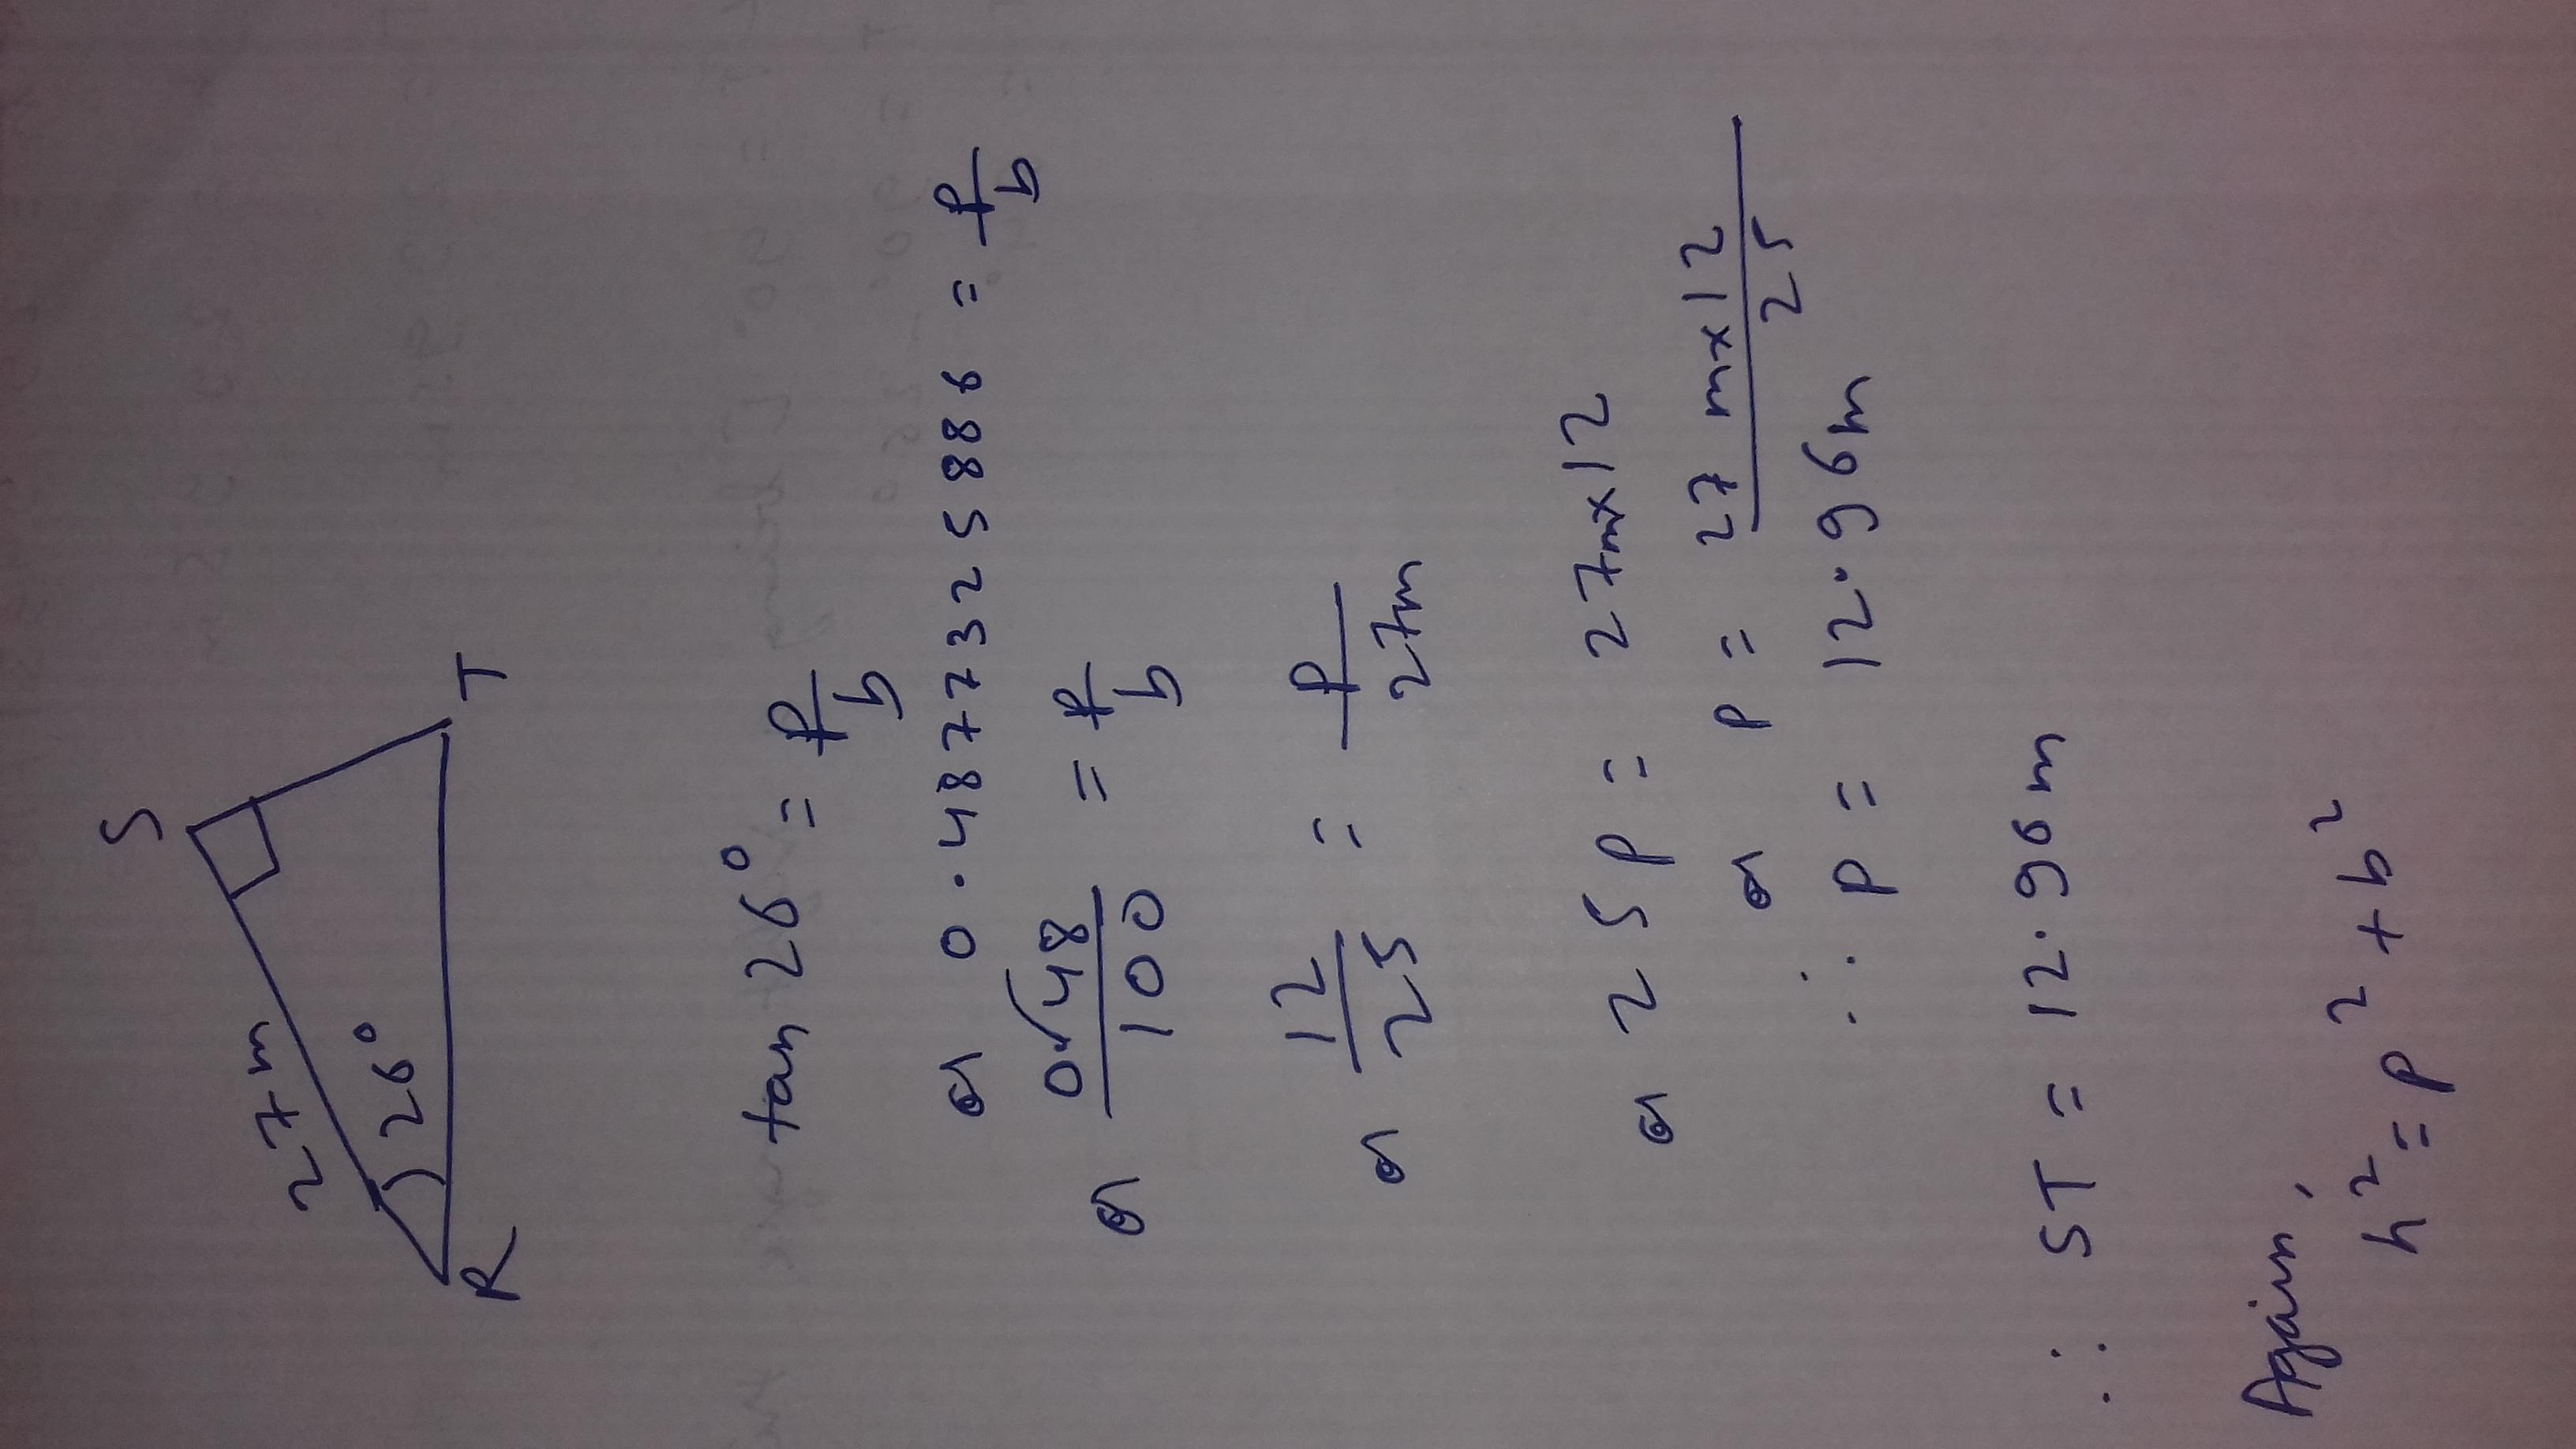 S
27m
26°
R
T
tan 26° = p/b
or 0.4877325886 = p/b
or 0.48/100 = p/b
or 12/25 = p/27m
or 25p = 27m×12
or p = 27m×12/25
∴ p = 12.96m
∴ ST = 12.96m
Again,
h² = p² + b²